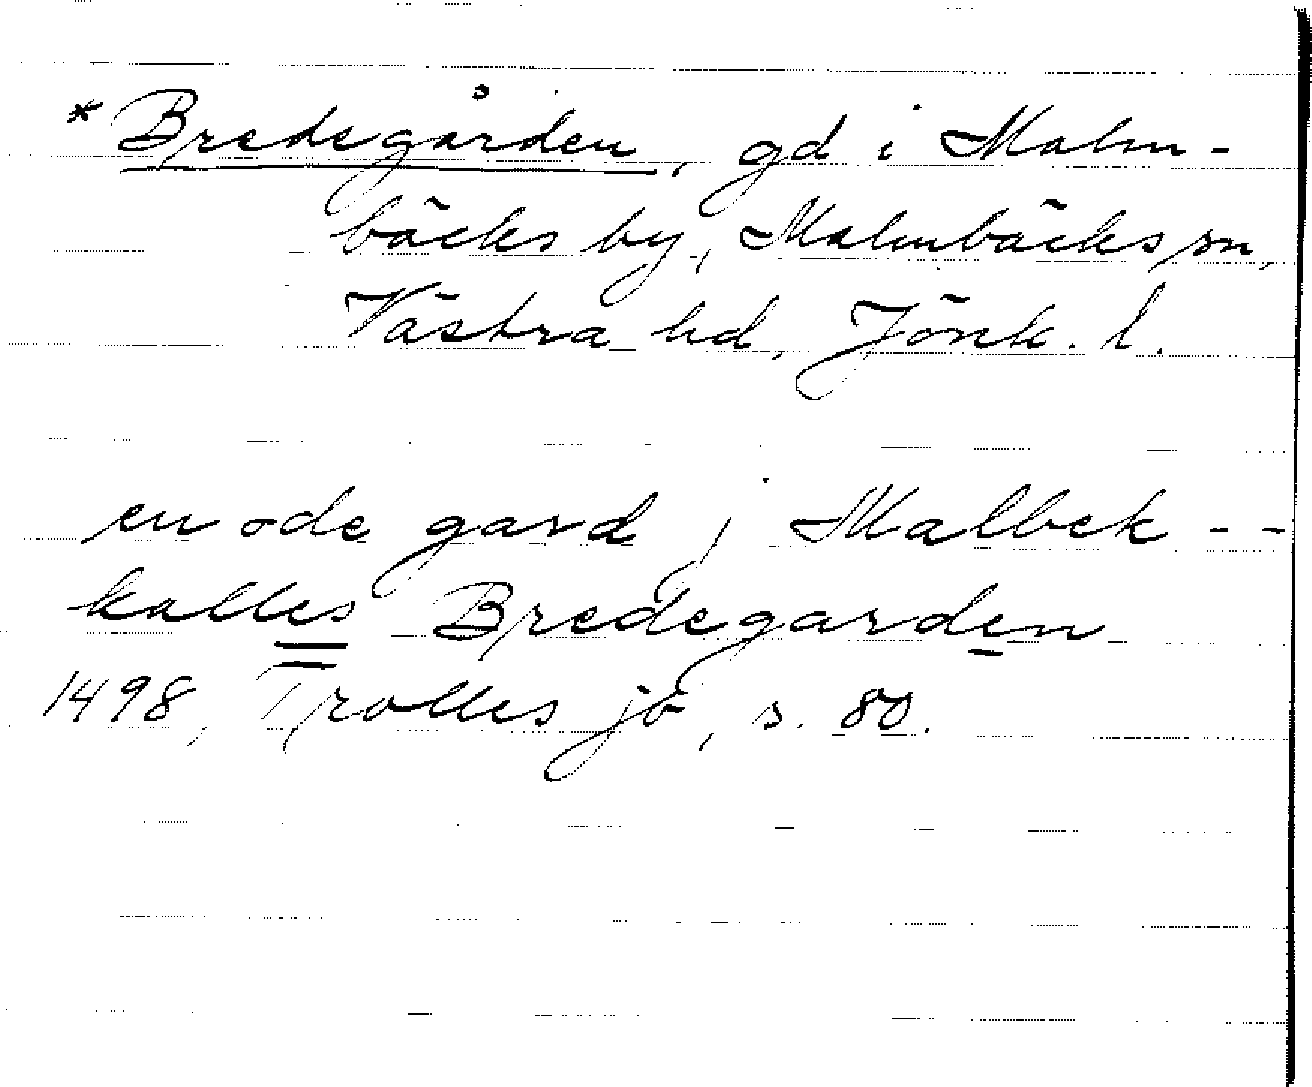 * Bredegården, gd i Malm-
bäcks by, Malmbäcks sn,
Västra hd, Jönk. l.
en ode gard j Malbek --
kalles Bredegarden
1498, Trolles jb, s. 80.